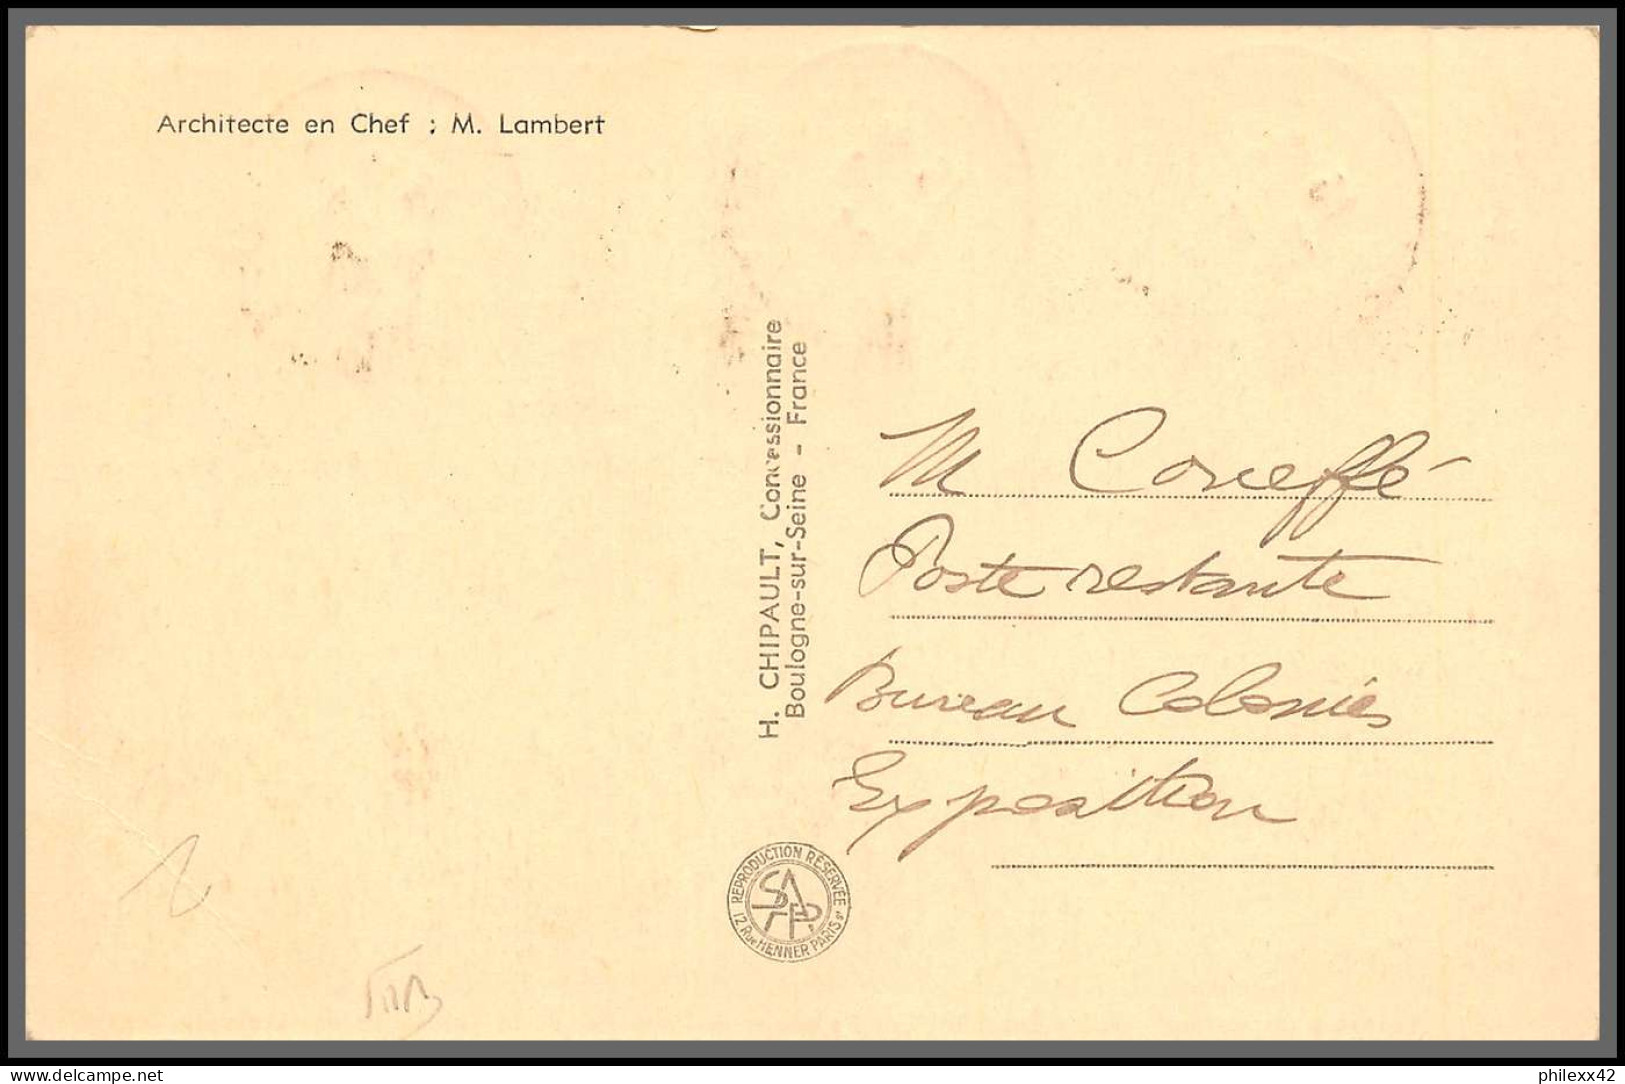 Architecte en Chef : M. Lambert
H. CHIPAULT, Concessionnaire
Boulogne-sur-Seine - France
M Coneffé
Poste restante
Bureau Colonies
Exposition
REPRODUCTION RÉSERVÉE
SAPP
12, Rue HENNER PARIS 9e
www.delcampe.net
philexx42